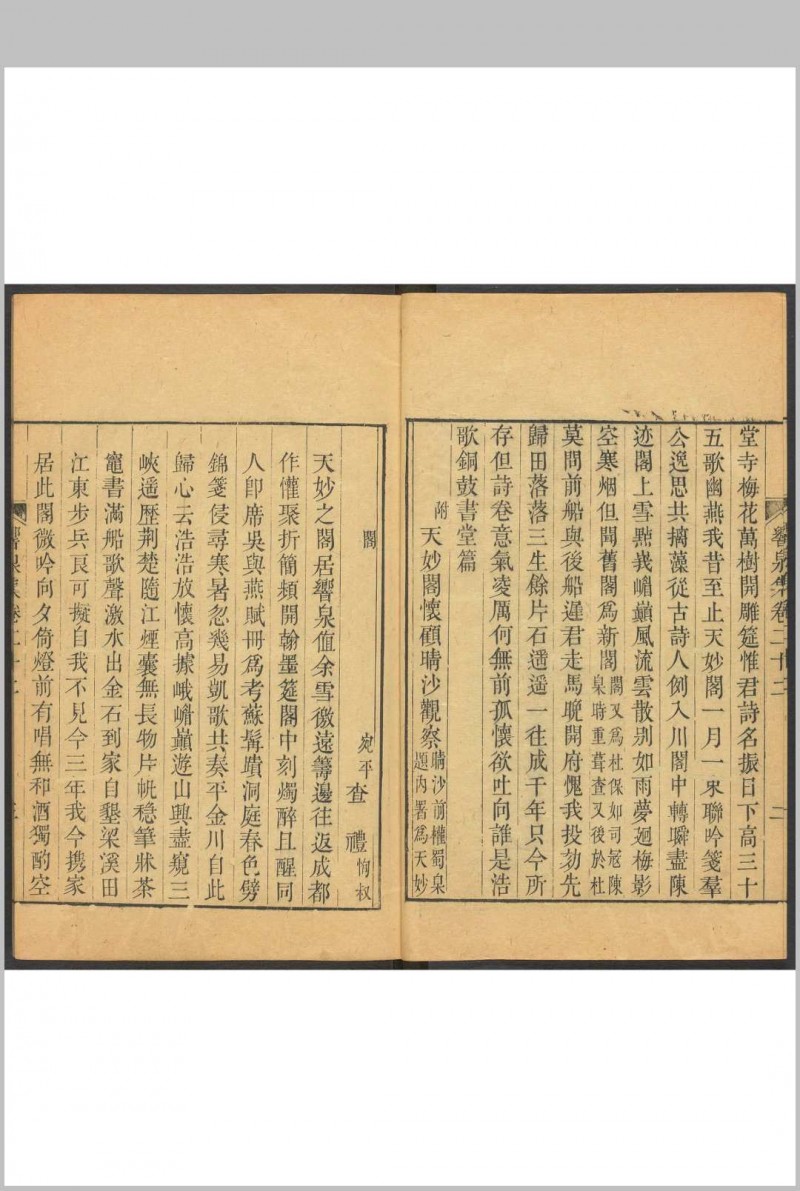 堂寺梅花萬樹開雕筵惟君詩名振日下高三十
五歌幽燕我昔至止天妙閣一月一來聯吟箋羣
公逸思共摛藻從古詩人例入川閣中轉瞬盡陳
迹閣上雪點峩嵋巔風流雲散别如雨夢廻梅影
空寒烟但聞舊閣爲新閣閣又爲杜保如司冦陳臬時重葺查又後於杜
莫問前船與後船遲君走馬晚開府愧我投劾先
歸田落落三生餘片石遥遥一往成千年只今所
存但詩卷意氣凌厲何無前孤懷欲吐向誰是浩
歌銅鼓書堂篇
附天妙閣懷顧晴沙觀察晴沙前權蜀臬題内署爲天妙
閣
宛平查禮恂叔
天妙之閣居響泉值余雪徼遠籌邊往返成都
作懽聚折簡頻開翰墨筵閣中刻燭醉且醒同
人卽席吳與燕賦冊爲考蘇髯蹟洞庭春色劈
錦箋侵尋寒暑忽幾易凱歌共奏平金川自此
歸心云浩浩放懷高據峨嵋巔遊山興盡窺三
峽遥歷荆楚隨江煙囊無長物片帆穏筆牀茶
竈書滿船歌聲激水出金石到家自墾梁溪田
江東步兵良可擬自我不見今三年我今携家
居此閣微吟向夕倚燈前有唱無和酒獨酌空
響泉集卷二十二
二